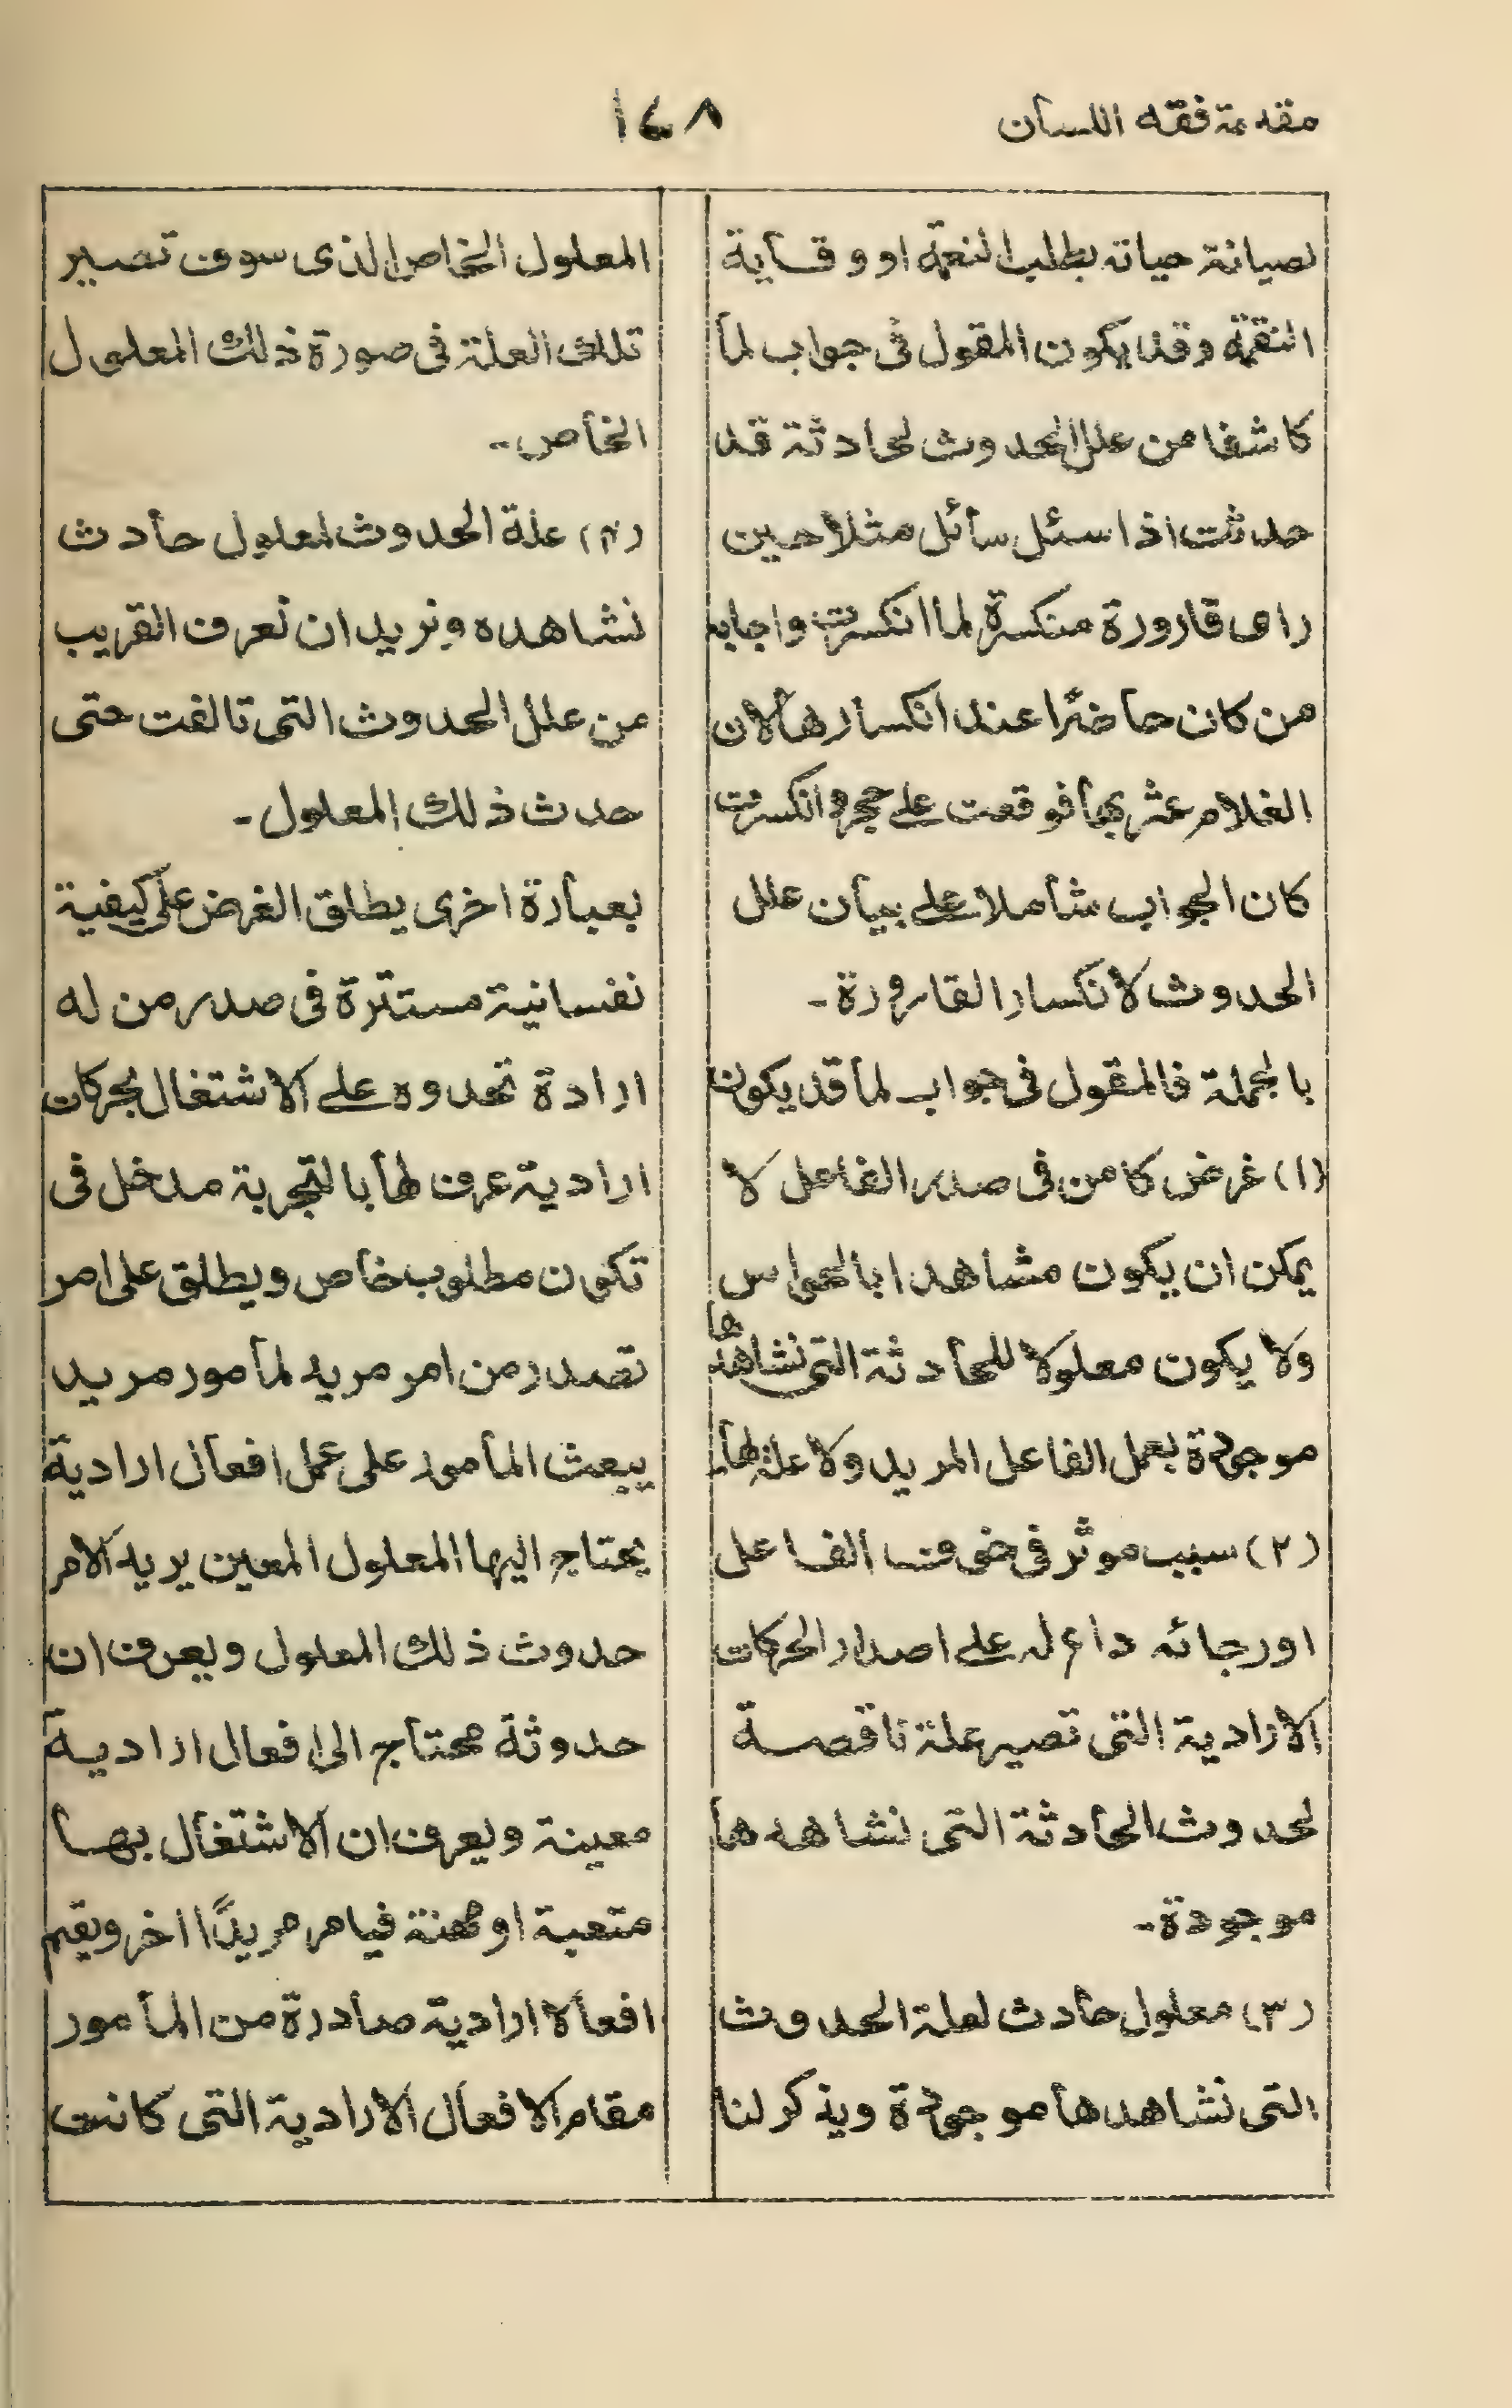 مقدمة فقه اللسان
١٤٨
لصيانة حياته بطلب النعمة او وقاية
النقمة وقد يكون المقول فى جواب لما
كاشفا من علل الحدوث لحادثة قد
حدثت اذا سئل سائل مثلا حين
راى قارورة منكسرة لما انكسرت واجابه
من كان حاضرًا عند انكسارها لان
الغلام عثر بها فوقعت على حجر و انكسرت
كان الجواب شاملا على بيان علل
الحدوث لانكسار القارورة -
بالجملة فالمقول فى جواب لما قد يكون
(١) غرض كامن فى صدر الفاعل لا
يمكن ان يكون مشاهدا بالحواس
ولا يكون معلولا للحادثة التى نشاهدها
موجودة بعمل الفاعل المريد ولا علة لها-
(٢) سبب موثر فى خوف الفاعل
او رجائه داع له على اصدار الحركات
الارادية التى تصير علة ناقصة
لحدوث الحادثة التى نشاهدها
موجودة-
(٣) معلول حادث لعلة الحدوث
التى نشاهدها موجودة ويذكر لنا
المعلول الخاص الذى سوف تصير
تلك العلة فى صورة ذلك المعلول
الخاص-
(٤) علة الحدوث لمعلول حادث
نشاهده ونريد ان نعرف القريب
من علل الحدوث التى تالفت حتى
حدث ذلك المعلول -
بعبارة اخرى يطلق الغرض على كيفية
نفسانية مستترة فى صدر من له
ارادة تحدوه على الاشتغال بحركات
ارادية عرف لها بالتجربة مدخل فى
تكون مطلوب خاص ويطلق على امر
تصدر من امر مريد لمأمور مريد
يبعث المأمور على عمل افعال ارادية
يحتاج اليها المعلول المعين يريد الامر
حدوث ذلك المعلول ويعرف ان
حدوثة محتاج الى افعال ارادية
معينة ويعرف ان الاشتغال بها
متعبة او مهنة فيامر مريدًا اخر ويقيم
افعالا ارادية صادرة من المأمور
مقام الافعال الارادية التى كانت